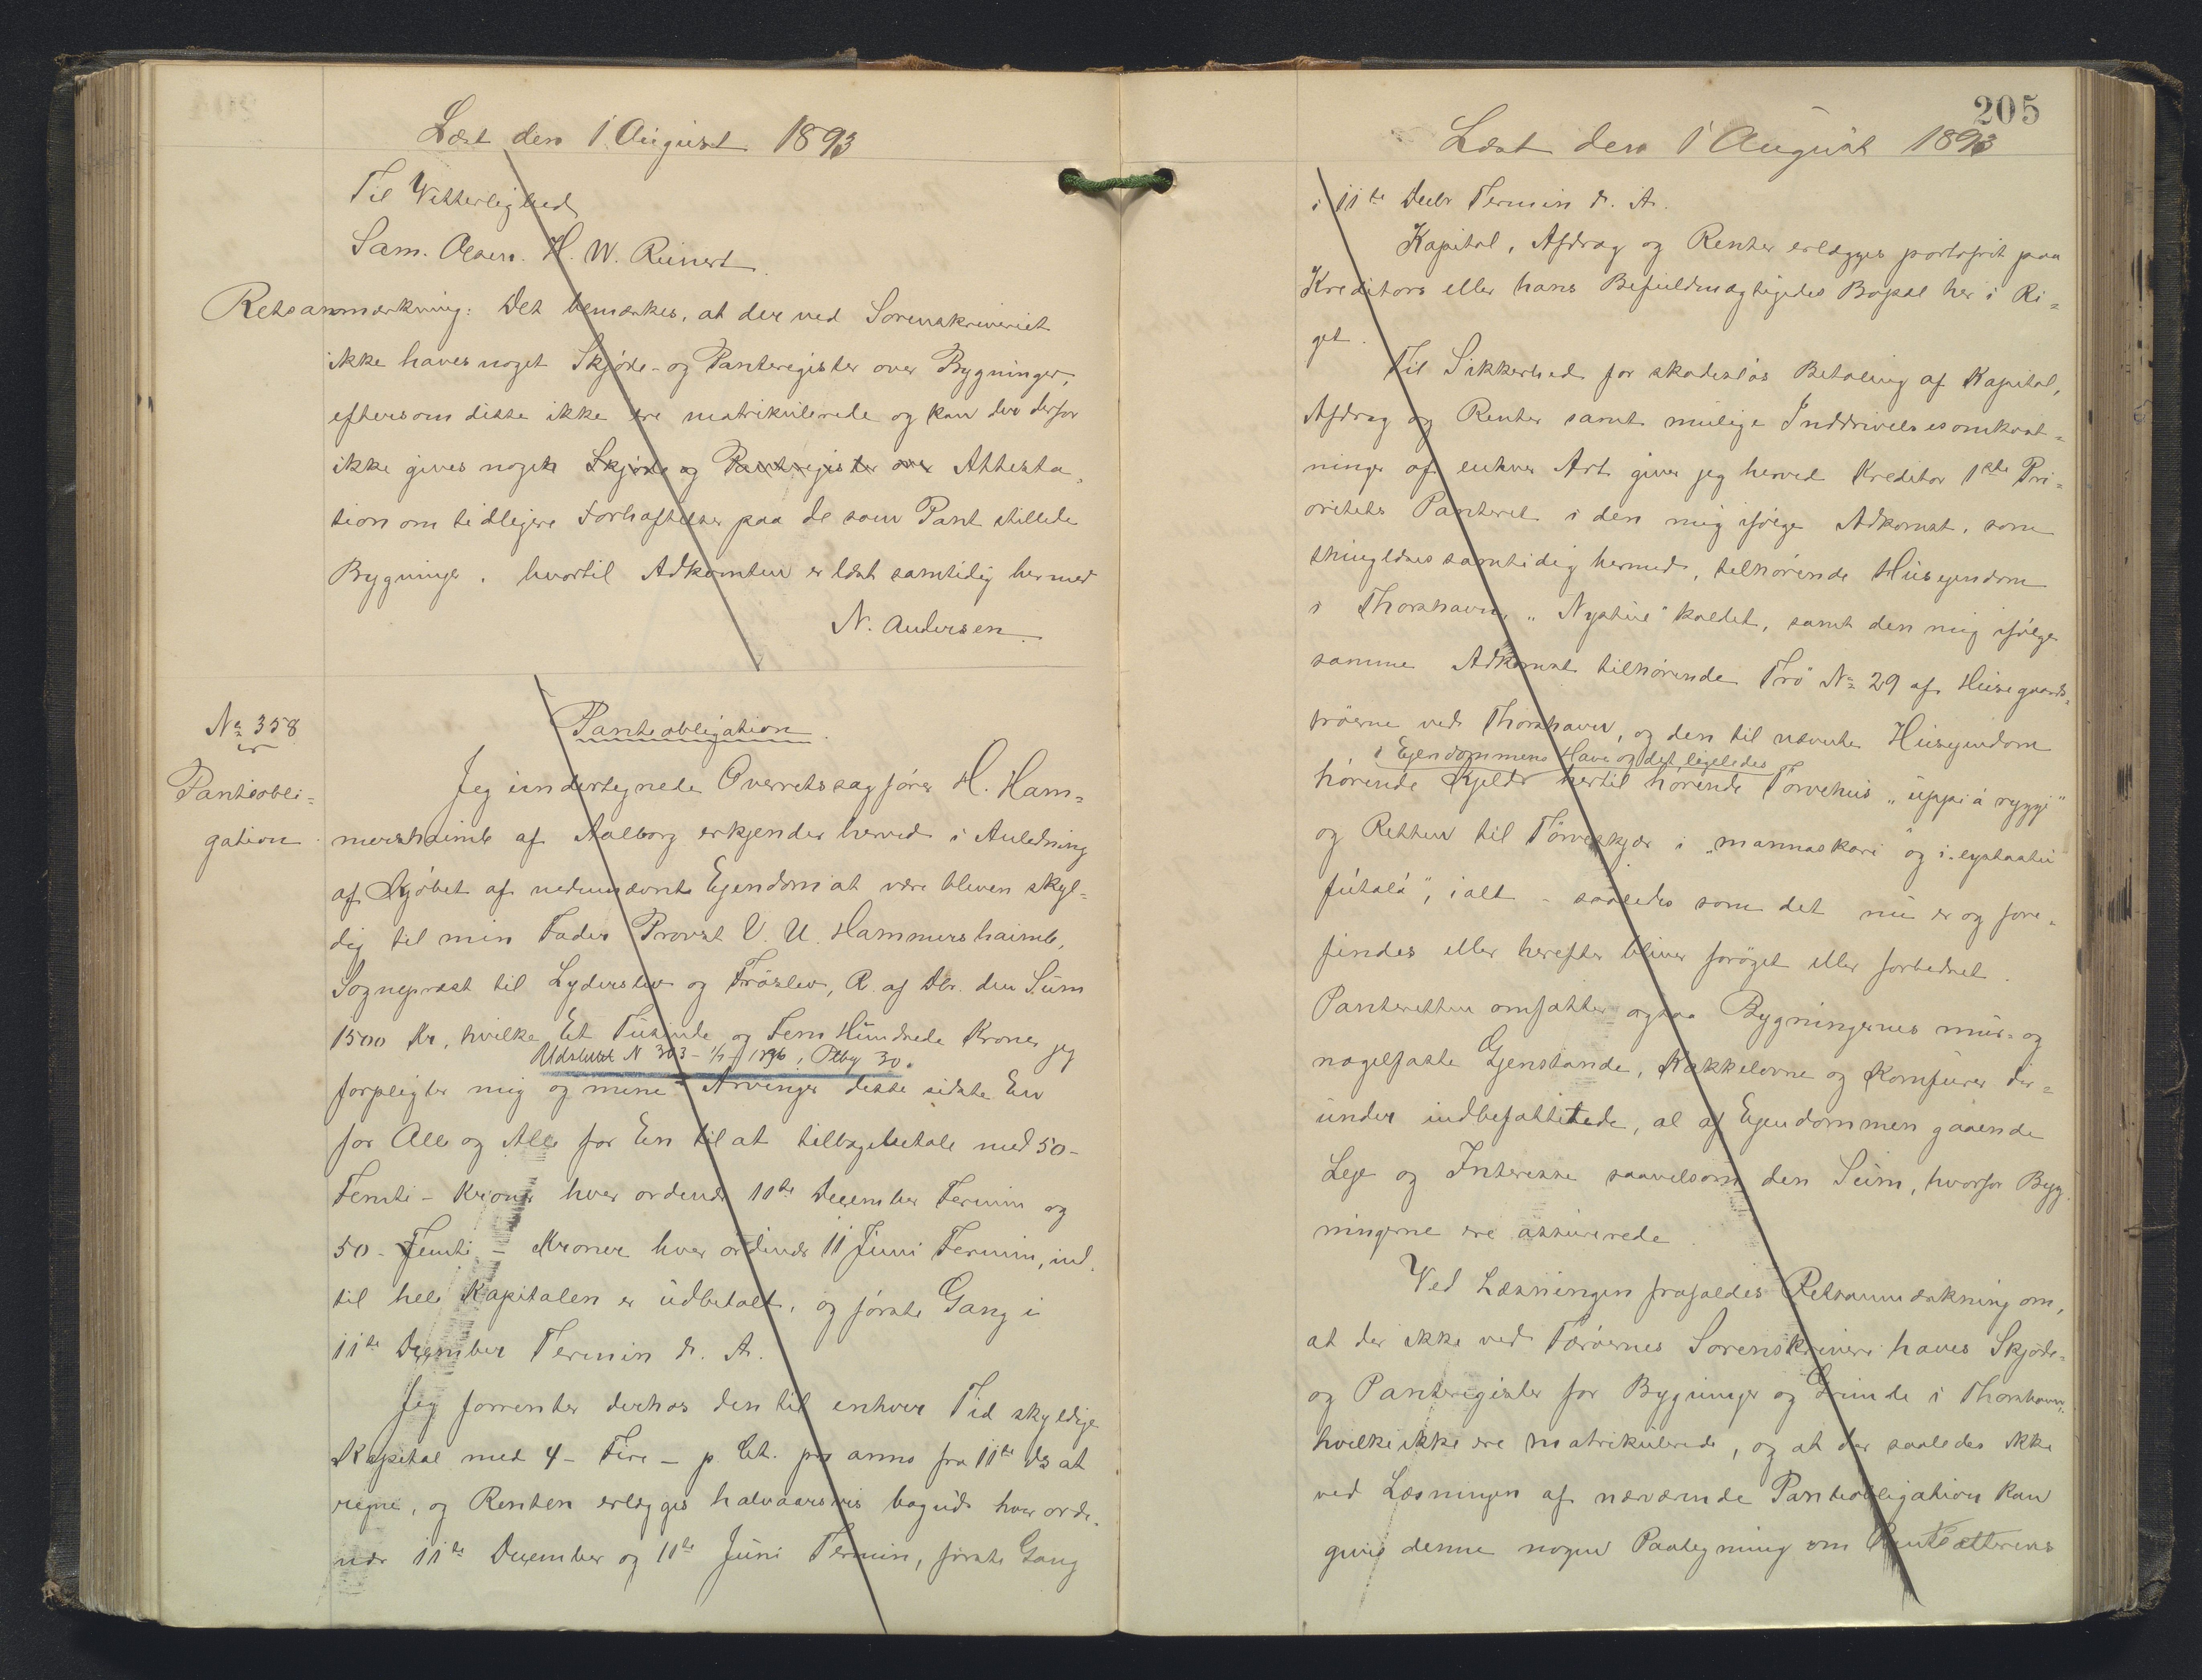 Læst den 1 August 1893
Til Vitterlighed
Sam. Olsen. H. W. Reinert.
Retsanmærkning: Det bemærkes, at der ved Sorenskriveriet
ikke haves noget Skjøde- og Panteregister over Bygninger,
eftersom disse ikke ere matrikulerede og kan der derfor
ikke gives nogen Skjøde og Panteregister over Attesta-
tion om tidligere Forhæftelser paa de som Pant stillede
Bygninger, hvortil Adkomsten er læst samtidig hermed
N. Andersen
No 358
Panteobli=
gation.
Panteobligation.
Jeg undertegnede Overretssagfører H. Ham=
mershaimb af Aalborg erkjender herved i Anledning
af Kjøbet af nedennævnte Ejendom at være bleven skyl=
dig til min Fader Provst V. U. Hammershaimb,
Sognepræst til Lyderslev og Frøslev, R. af Dbr. den Sum
1500 Kr, hvilke Et Tusinde og Fem Hundrede Kroner jeg
Udslettet N 303 - 1/7 1896, Ptbg 30.
forpligter mig og mine Arvinger disse sidste En
for Alle og Alle for En til at tilbagebetale med 50-
Femti - Kroner hver ordinær 11te December Termin og
50 - Femti - Kroner hver ordinær 11 Juni Termin, ind-
til hele Kapitalen er udbetalt, og første Gang i
11te December Termin d. A.
Jeg forrenter derhos den til enhver Tid skyldige
Kapital med 4 - Fire - p. Ct. pro anno fra 11te Ds at
regne, og Renten erlægges halvaarsvis bagud hver ordi-
nær 11te December og 11te Juni Termin, første Gang
205
Læst den 1 August 1893
i 11te Decbr Termin d. A.
Kapital, Afdrag og Renter erlægges portofrit paa
Kreditors eller hans Befuldmægtigedes Bopæl her i Ri=
get.
Til Sikkerhed for skadesløs Betaling af Kapital,
Afdrag og Renter samt mulige Inddrivelsesomkost=
ninger af enhver Art giver jeg herved Kreditor 1ste Pri=
oritets Panteret i den mig ifølge Adkomst, som
thinglæses samtidig hermed, tilhørende Huseiendom
i Thorshavn, "Nystue" kaldet, samt den mig ifølge
samme Adkomst tilhørende Trö No 29 af Husegaards-
tröerne ved Thorshavn, og den til nævnte Huseiendom
i Ejendommens Have og det ligeledes
hørende Kjeld hertil hørende Tørvehus "uppi á ryggi"
og Retten til Tørveskjær i "mannaskari" og i
, ialt - saaledes som det nu er og fore-
findes eller herefter bliver forøget eller forbedret.
Panteretten omfatter ogsaa Bygningernes mur- og
nagelfaste Gjenstande, Kakkelovne og Komfurer der=
under indbefattetede, al af Ejendommen gaaende
Leje og Interesse saavelsom den Sum, hvorfor Byg-
ningerne ere assurerede.
Ved Læsningen frafaldes Retsanmærkning om,
at der ikke ved Færøernes Sorenskriveri haves Skjøde-
og Panteregister for Bygninger og Grunde i Thorshavn,
hvilke ikke ere matrikulerede, og at der saaledes ikke
ved Læsningen af nærværende Panteobligation kan
gives denne nogen Paategning om Pantsætterens